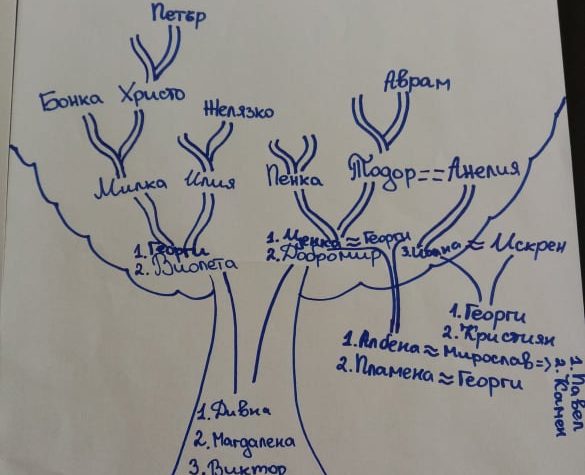 Петър
Аврам
Бонка Христо
Желязко
Милка Илия
Пенка Тодор == Анелия
1. Георги
2. Виолета
1. Ценка ≈ Георги
2. Добромир
3. Ивана ≈ Искрен
1. Георги
2. Кристиян
1. Албена ≈ Мирослав => 1. Павел
2. Камен
2. Пламена ≈ Георги
1. Дивна
2. Магдалена
3. Виктор